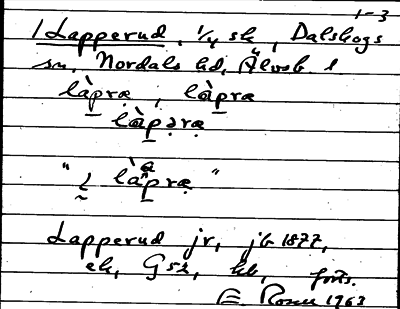 1-3
1 Lapperud, 1/4 sk, Dalskogs
sn, Nordals hd, Älvsb. l
làpræ, làpræ
làpəræ
"i làpræ"
Lapperud jr, jb 1877,
ek, Gsk, hb, forts.
E. Rosell 1963